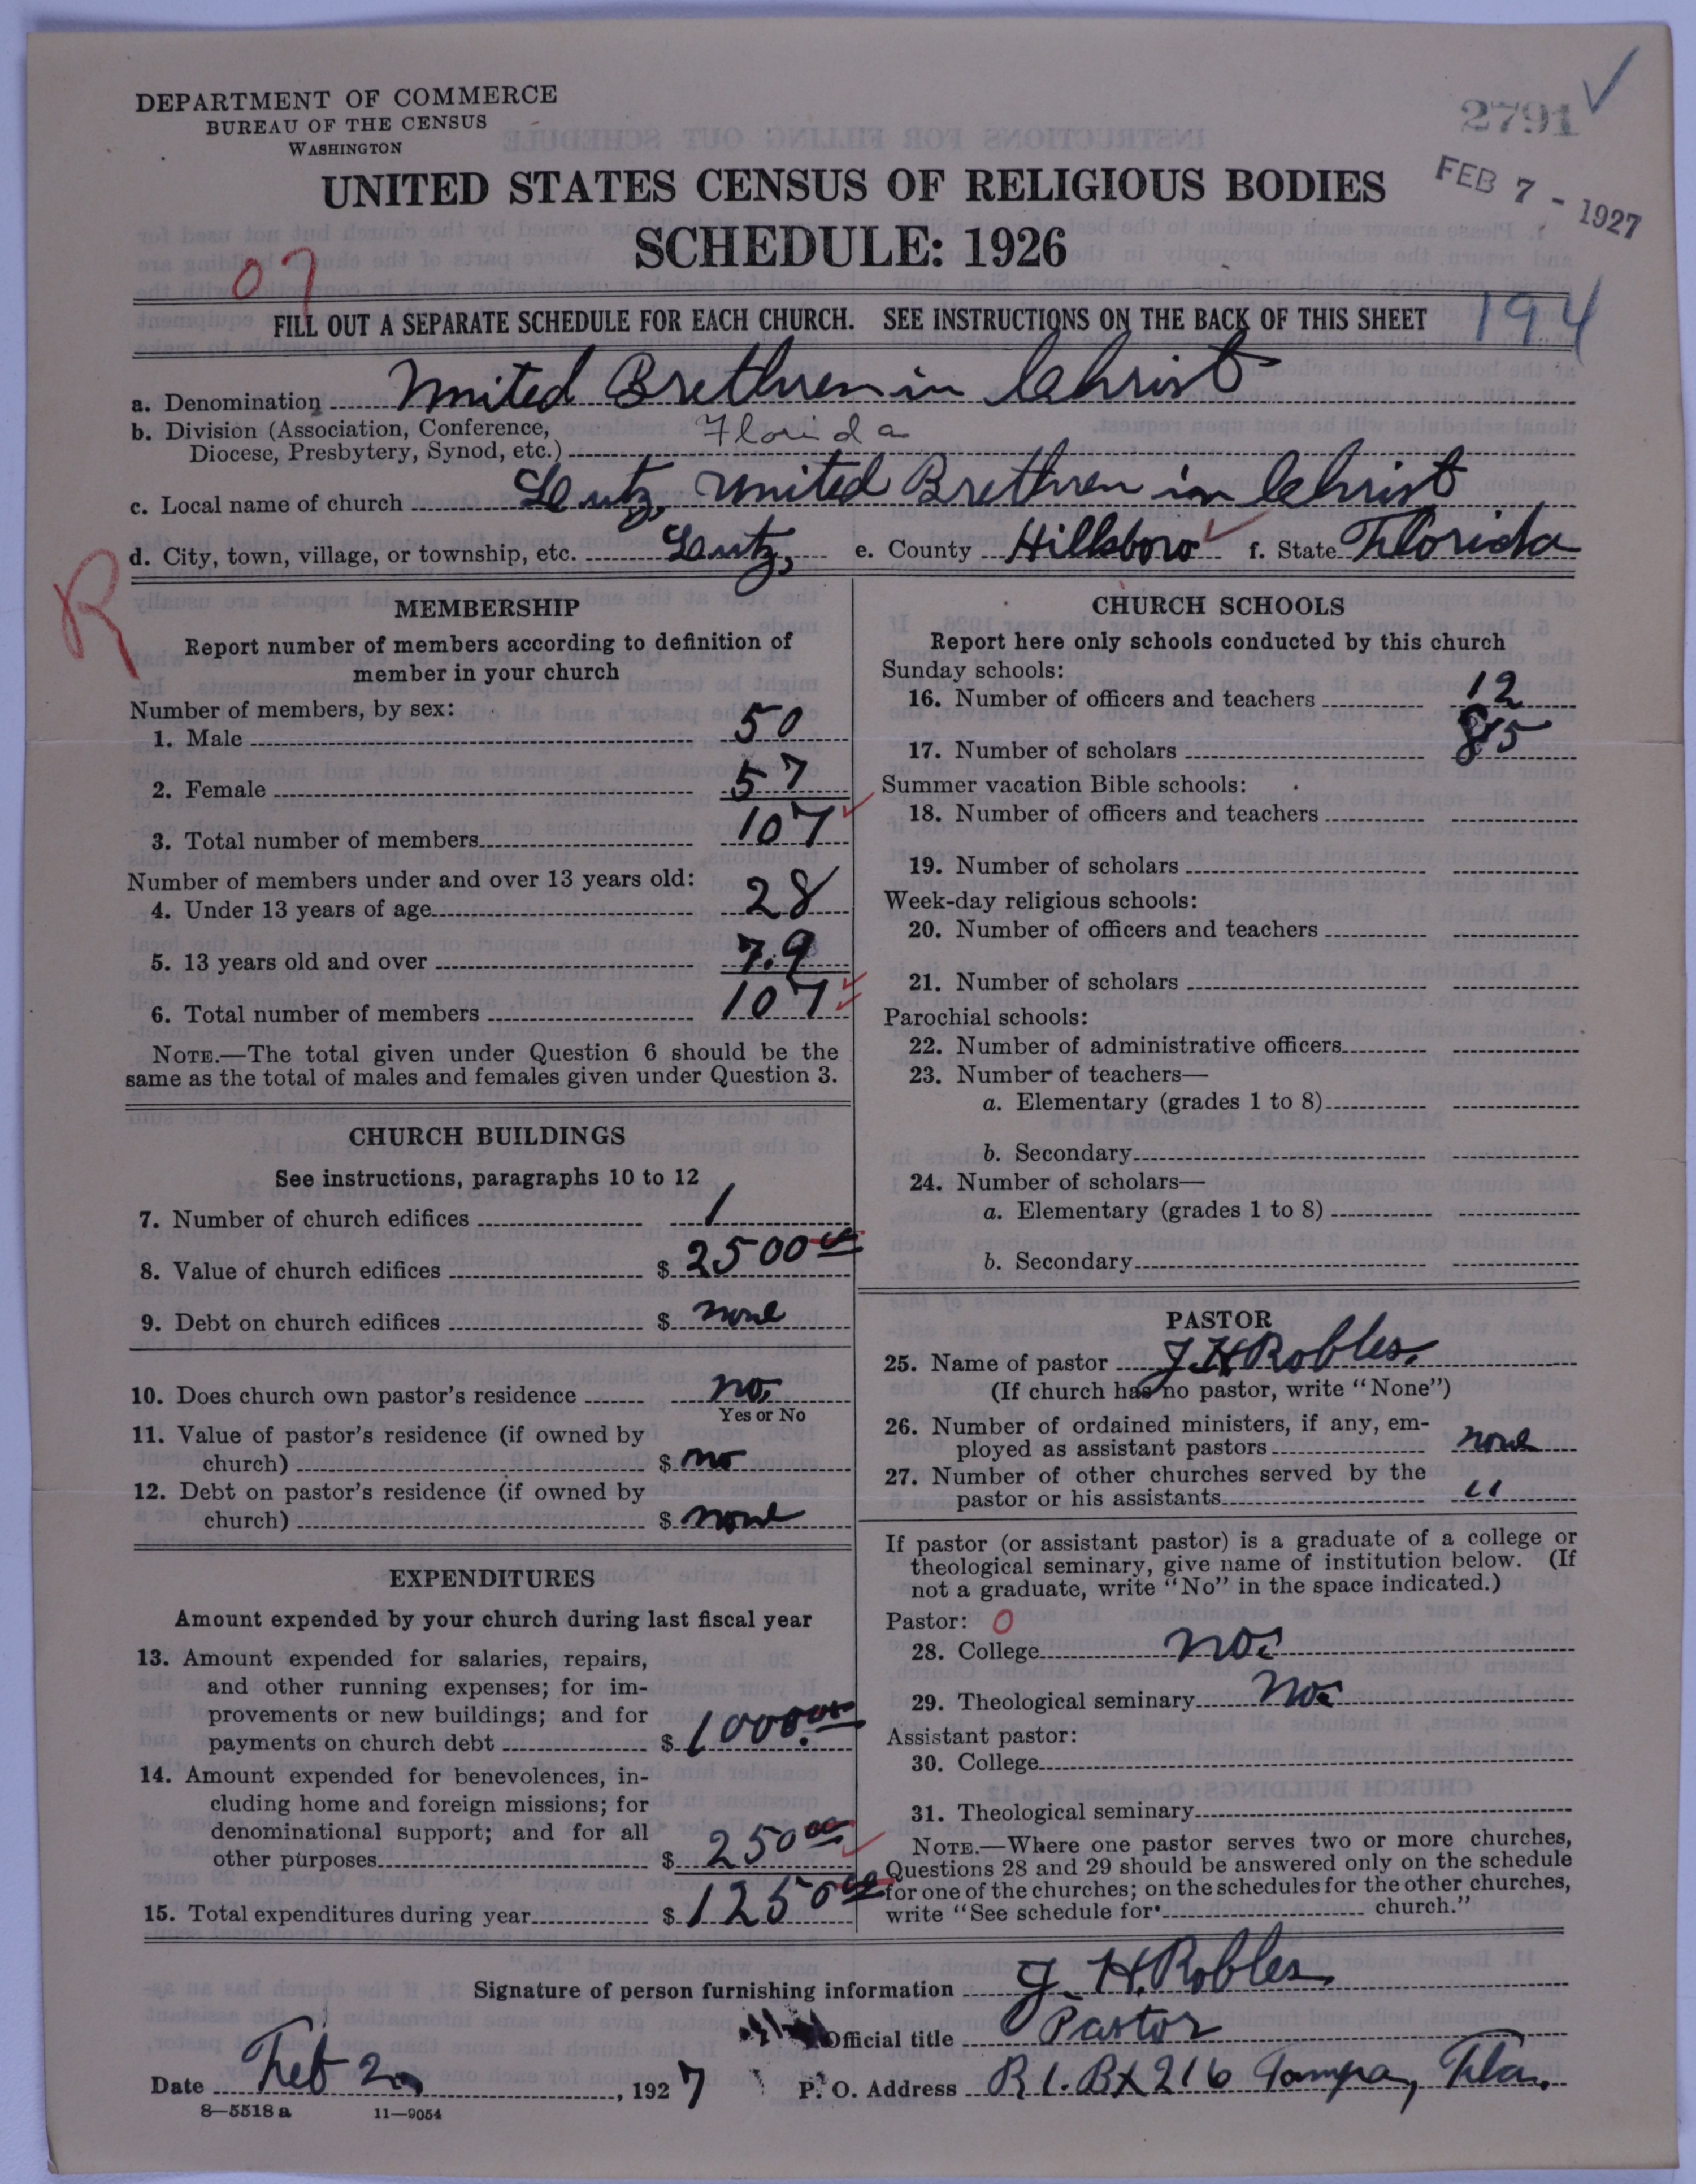 DEPARTMENT OF COMMERCE
BUREAU OF THE CENSUS
WASHINGTON
2791
FEB 7 - 1927
UNITED STATES CENSUS OF RELIGIOUS BODIES
SCHEDULE: 1926
07
FILL OUT A SEPARATE SCHEDULE FOR EACH CHURCH. SEE INSTRUCTIONS ON THE BACK OF THIS SHEET
194
a. Denomination United Brethren in Christ
b. Division (Association, Conference,
Diocese, Presbytery, Synod, etc.) Florida
c. Local name of church Lutz, United Brethren in Christ
d. City, town, village, or township, etc. Lutz, e. County Hillsboro f. State Florida
R
MEMBERSHIP
Report number of members according to definition of
member in your church
Number of members, by sex:
1. Male 50
2. Female 57
3. Total number of members 107
Number of members under and over 13 years old:
4. Under 13 years of age 28
5. 13 years old and over 79
6. Total number of members 107
NOTE.—The total given under Question 6 should be the
same as the total of males and females given under Question 3.
CHURCH BUILDINGS
See instructions, paragraphs 10 to 12
7. Number of church edifices 1
8. Value of church edifices $ 2500 00
9. Debt on church edifices $ none
10. Does church own pastor's residence no.
Yes or No
11. Value of pastor's residence (if owned by
church) $ no
12. Debt on pastor's residence (if owned by
church) $ none
EXPENDITURES
Amount expended by your church during last fiscal year
13. Amount expended for salaries, repairs,
and other running expenses; for im-
provements or new buildings; and for
payments on church debt $ 1000.00
14. Amount expended for benevolences, in-
cluding home and foreign missions; for
denominational support; and for all
other purposes $ 250 00
15. Total expenditures during year $ 1250 00
CHURCH SCHOOLS
Report here only schools conducted by this church
Sunday schools:
16. Number of officers and teachers 12
17. Number of scholars 85
Summer vacation Bible schools:
18. Number of officers and teachers
19. Number of scholars
Week-day religious schools:
20. Number of officers and teachers
21. Number of scholars
Parochial schools:
22. Number of administrative officers
23. Number of teachers—
a. Elementary (grades 1 to 8)
b. Secondary
24. Number of scholars—
a. Elementary (grades 1 to 8)
b. Secondary
PASTOR
25. Name of pastor J. H Robles.
(If church has no pastor, write "None")
26. Number of ordained ministers, if any, em-
ployed as assistant pastors none
27. Number of other churches served by the
pastor or his assistants "
If pastor (or assistant pastor) is a graduate of a college or
theological seminary, give name of institution below. (If
not a graduate, write "No" in the space indicated.)
Pastor: 0
28. College no.
29. Theological seminary no.
Assistant pastor:
30. College
31. Theological seminary
NOTE.—Where one pastor serves two or more churches,
Questions 28 and 29 should be answered only on the schedule
for one of the churches; on the schedules for the other churches,
write "See schedule for church."
Signature of person furnishing information J. H. Robles
Official title Pastor
Date Feb 2, 1927 P. O. Address R 1. Bx 216 Tampa, Fla.
8—5518 a 11—9054